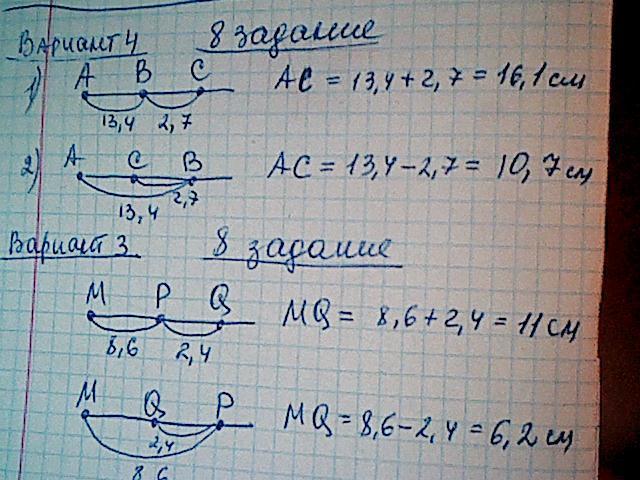 Вариант 4 8 задание
1) A B C AC = 13,4 + 2,7 = 16,1 см
13,4 2,7
2) A C B AC = 13,4 - 2,7 = 10,7 см
2,7
13,4
Вариант 3 8 задание
M P Q MQ = 8,6 + 2,4 = 11 см
8,6 2,4
M Q P MQ = 8,6 - 2,4 = 6,2 см
2,4
8,6